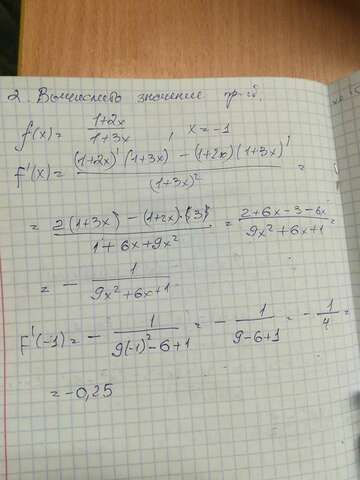 2. Вычислить значение пр-ой.
f(x) = (1+2x)/(1+3x), x = -1
f'(x) = ((1+2x)'(1+3x) - (1+2x)(1+3x)')/(1+3x)² =
= (2(1+3x) - (1+2x)·(3))/(1+6x+9x²) = (2+6x-3-6x)/(9x²+6x+1) =
= - 1/(9x²+6x+1)
F'(-1) = - 1/(9(-1)²-6+1) = - 1/(9-6+1) = - 1/4 =
= -0,25